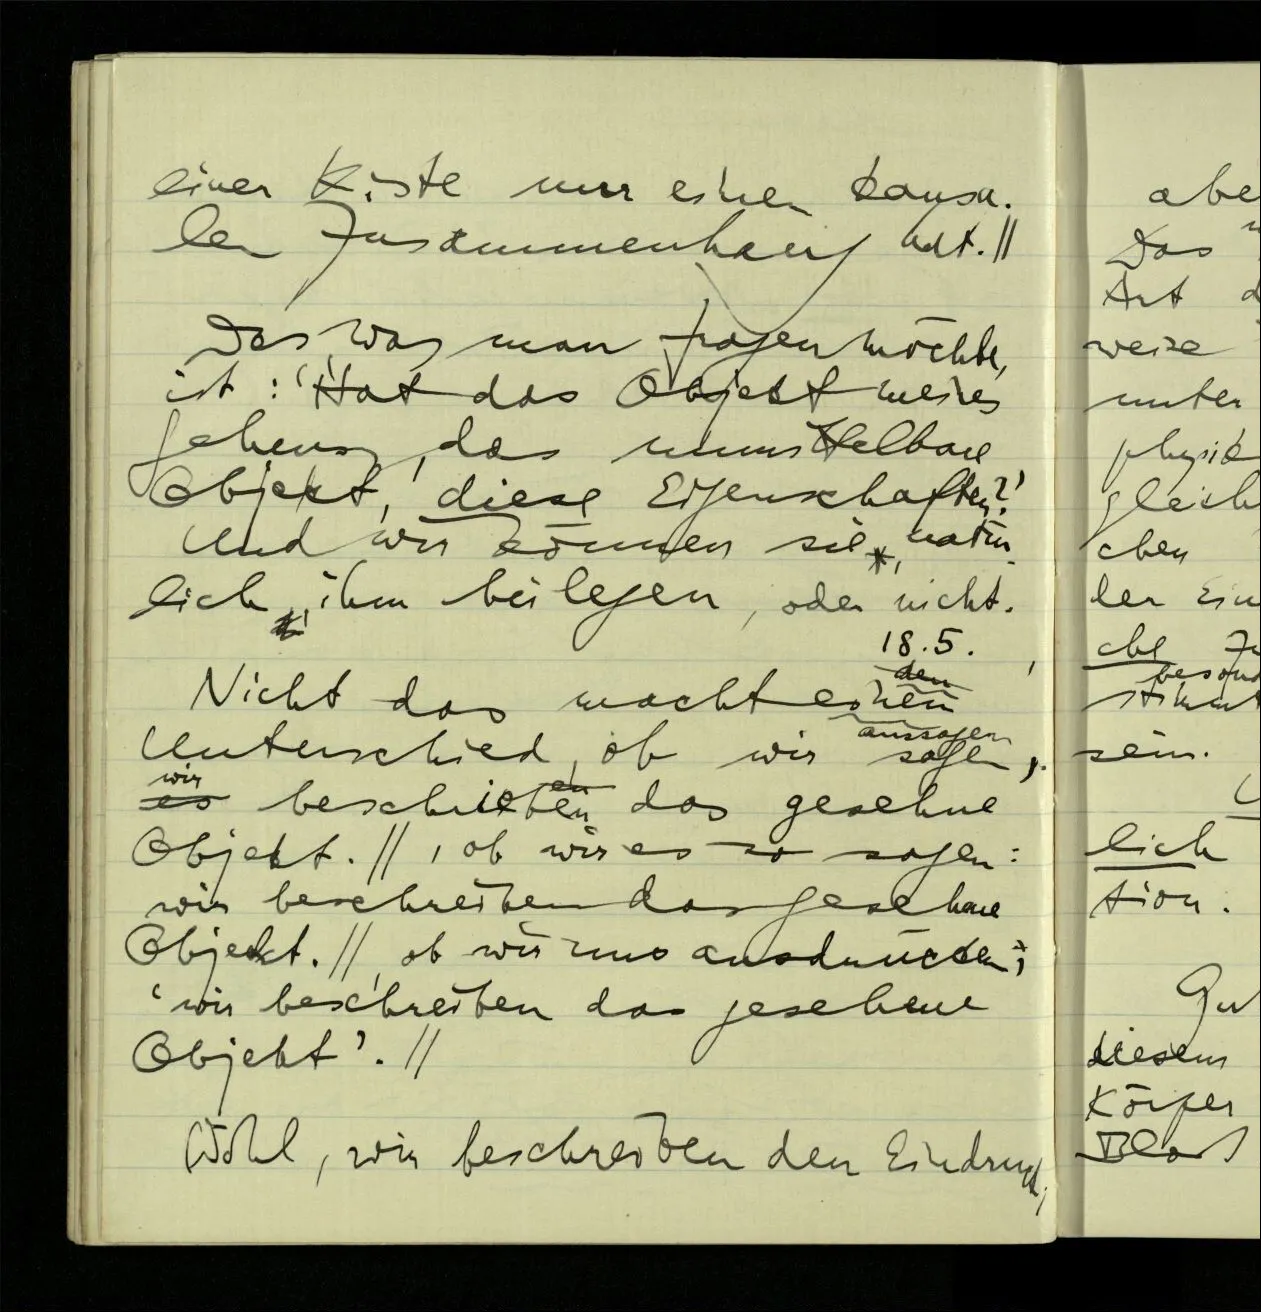 einer Kiste nur einen kausa-
len Zusammenhang hat. //
Das, was man fragen möchte,
ist: 'Hat das Objekt meines
Sehens, das unmittelbare
Objekt, diese Eigenschaften?'
Und wir können sie, natür-
lich, ihm beilegen, oder nicht.
18.5.
den
Nicht das macht einen
Unterschied, ob wir sagen,
aussagen
wir
es beschreiben das gesehne
en
Objekt. // , ob wir es so sagen:
wir beschreiben das gesehene
Objekt. // , ob wir uns ausdrücken:
'wir beschreiben das gesehene
Objekt'. //
Wohl, wir beschreiben den Eindruck,
abe
Das
Art d
weise
unter
physik
gleich
chen
der Ein
che Zu
besond
stimmt
sein.
lich
tion.
Gut
diesem
Körper